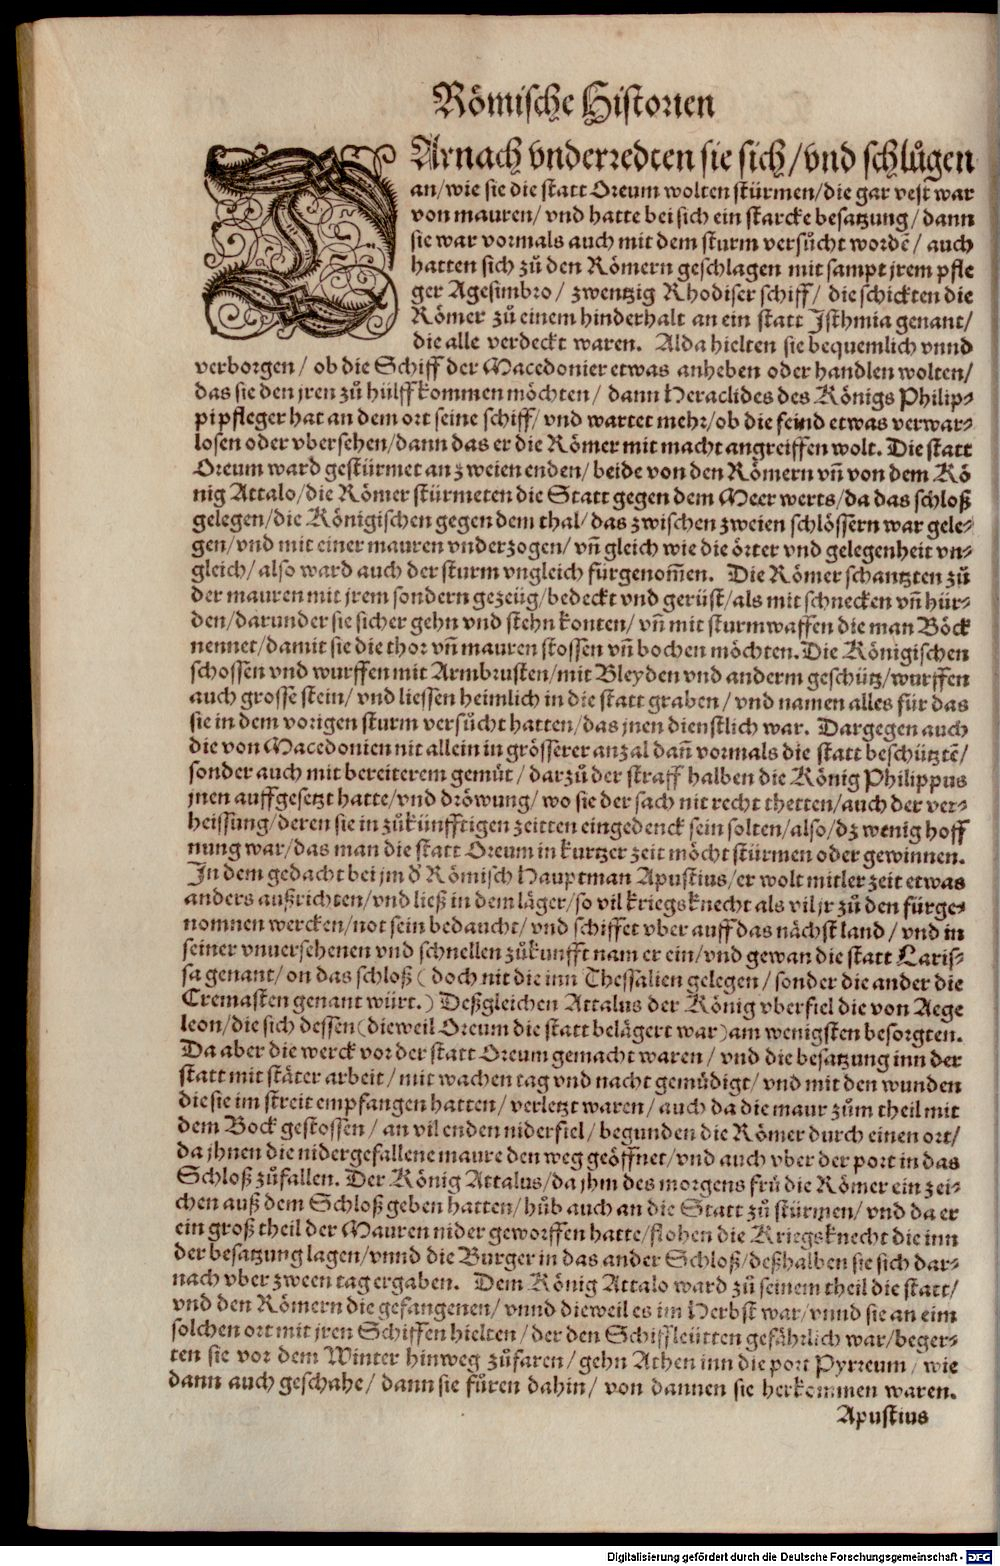 Römische Historien
DArnach vnderredten sie sich/vnd schlůgen
an/wie sie die statt Oreum wolten stürmen/die gar vest war
von mauren/ vnd hatte bei sich ein starcke besatzung/dann
sie war vormals auch mit dem sturm versůcht wordẽ/ auch
hatten sich zů den Römern geschlagen mit sampt jrem pfle
ger Agesimbro/ zwentzig Rhodiser schiff/ die schickten die
Römer zů einem hinderhalt an ein statt Isthmia genant/
die alle verdeckt waren. Alda hielten sie bequemlich vnnd
verborgen/ ob die Schiff der Macedonier etwas anheben oder handlen wolten/
das sie den jren zů hülff kommen möchten/ dann Heraclides des Königs Philip-
pi pfleger hat an dem ort seine schiff/ vnd wartet mehr/ob die feind etwas verwar-
losen oder vbersehen/dann das er die Römer mit macht angreiffen wolt. Die statt
Oreum ward gestürmet an zweien enden/ beide von den Römern vñ von dem Kö
nig Attalo/die Römer stürmeten die Statt gegen dem Meer werts/da das schloß
gelegen/die Königischen gegen dem thal/das zwischen zweien schlössern war gele-
gen/vnd mit einer mauren vnderzogen/ vñ gleich wie die örter vnd gelegenheit vn-
gleich/also ward auch der sturm vngleich fürgenom̃en. Die Römer schantzten zů
der mauren mit jrem sondern gezeüg/bedeckt vnd gerüst/als mit schnecken vñ hür-
den/darunder sie sicher gehn vnd stehn konten/ vñ mit sturmwaffen die man Böck
nennet/damit sie die thor vñ mauren stossen vñ bochen möchten. Die Königischen
schossen vnd wurffen mit Armbrusten/mit Bleyden vnd anderm geschütz/wurffen
auch grosse stein/ vnd liessen heimlich in die statt graben/ vnd namen alles für das
sie in dem vorigen sturm versůcht hatten/das jnen dienstlich war. Dargegen auch
die von Macedonien nit allein in grösserer anzal dañ vormals die statt beschütztẽ/
sonder auch mit bereiterem gemüt/ darzů der straff halben die König Philippus
jnen auffgesetzt hatte/vnd dröwung/ wo sie der sach nit recht thetten/auch der ver-
heissung/deren sie in zůkünfftigen zeitten eingedenck sein solten/also/dz wenig hoff
nung war/das man die statt Oreum in kurtzer zeit möcht stürmen oder gewinnen.
In dem gedacht bei jm d̕ Römisch Hauptman Apustius/er wolt mitler zeit etwas
anders außrichten/vnd ließ in dem läger/so vil kriegsknecht als vil jr zů den fürge-
nomnen wercken/not sein bedaucht/ vnd schiffet vber auff das nächst land/ vnd in
seiner vnuersehenen vnd schnellen zůkunfft nam er ein/vnd gewan die statt Laris-
sa genant/on das schloß (doch nit die inn Thessalien gelegen/ sonder die ander die
Cremasten genant würt.) Deßgleichen Attalus der König vberfiel die von Aege
leon/die sich dessen (dieweil Oreum die statt belägert war) am wenigsten besorgten.
Da aber die werck vor der statt Oreum gemacht waren/ vnd die besatzung inn der
statt mit stäter arbeit/ mit wachen tag vnd nacht gemüdigt/ vnd mit den wunden
die sie im streit empfangen hatten/ verletzt waren/ auch da die maur zům theil mit
dem Bock gestossen/ an vil enden niderfiel/ begunden die Römer durch einen ort/
da jhnen die nidergefallene maure den weg geöffnet/vnd auch vber der port in das
Schloß zůfallen. Der König Attalus/da jhm des morgens frü die Römer ein zei-
chen auß dem Schloß geben hatten/ hůb auch an die Statt zů stürmen/ vnd da er
ein groß theil der Mauren nider geworffen hatte/flohen die Kriegsknecht die inn
der besatzung lagen/vnnd die Burger in das ander Schloß/deßhalben sie sich dar-
nach vber zween tag ergaben. Dem König Attalo ward zů seinem theil die statt/
vnd den Römern die gefangenen/ vnnd dieweil es im Herbst war/vnnd sie an eim
solchen ort mit jren Schiffen hielten/der den Schiffleütten gefährlich war/beger-
ten sie vor dem Winter hinweg zůfaren/gehn Athen inn die port Pyrreum/ wie
dann auch geschahe/ dann sie füren dahin/ von dannen sie herkommen waren.
Apustius
Digitalisierung gefördert durch die Deutsche Forschungsgemeinschaft - DFG